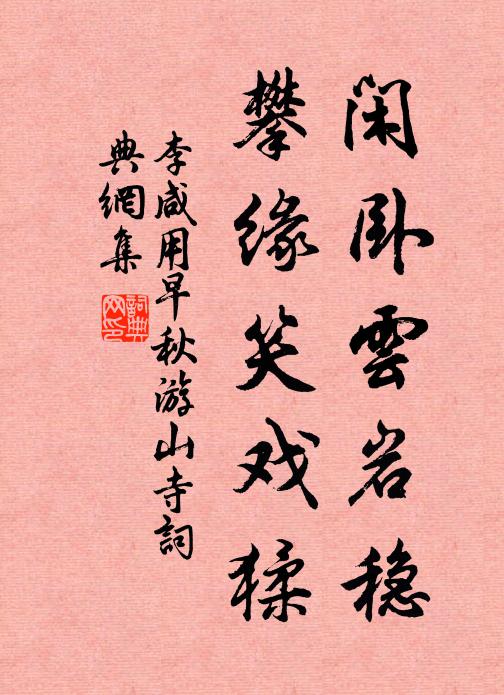 闲卧雲岩稳
攀缘笑戏猱
李咸用早秋游山寺詞
典網集
詞典网印